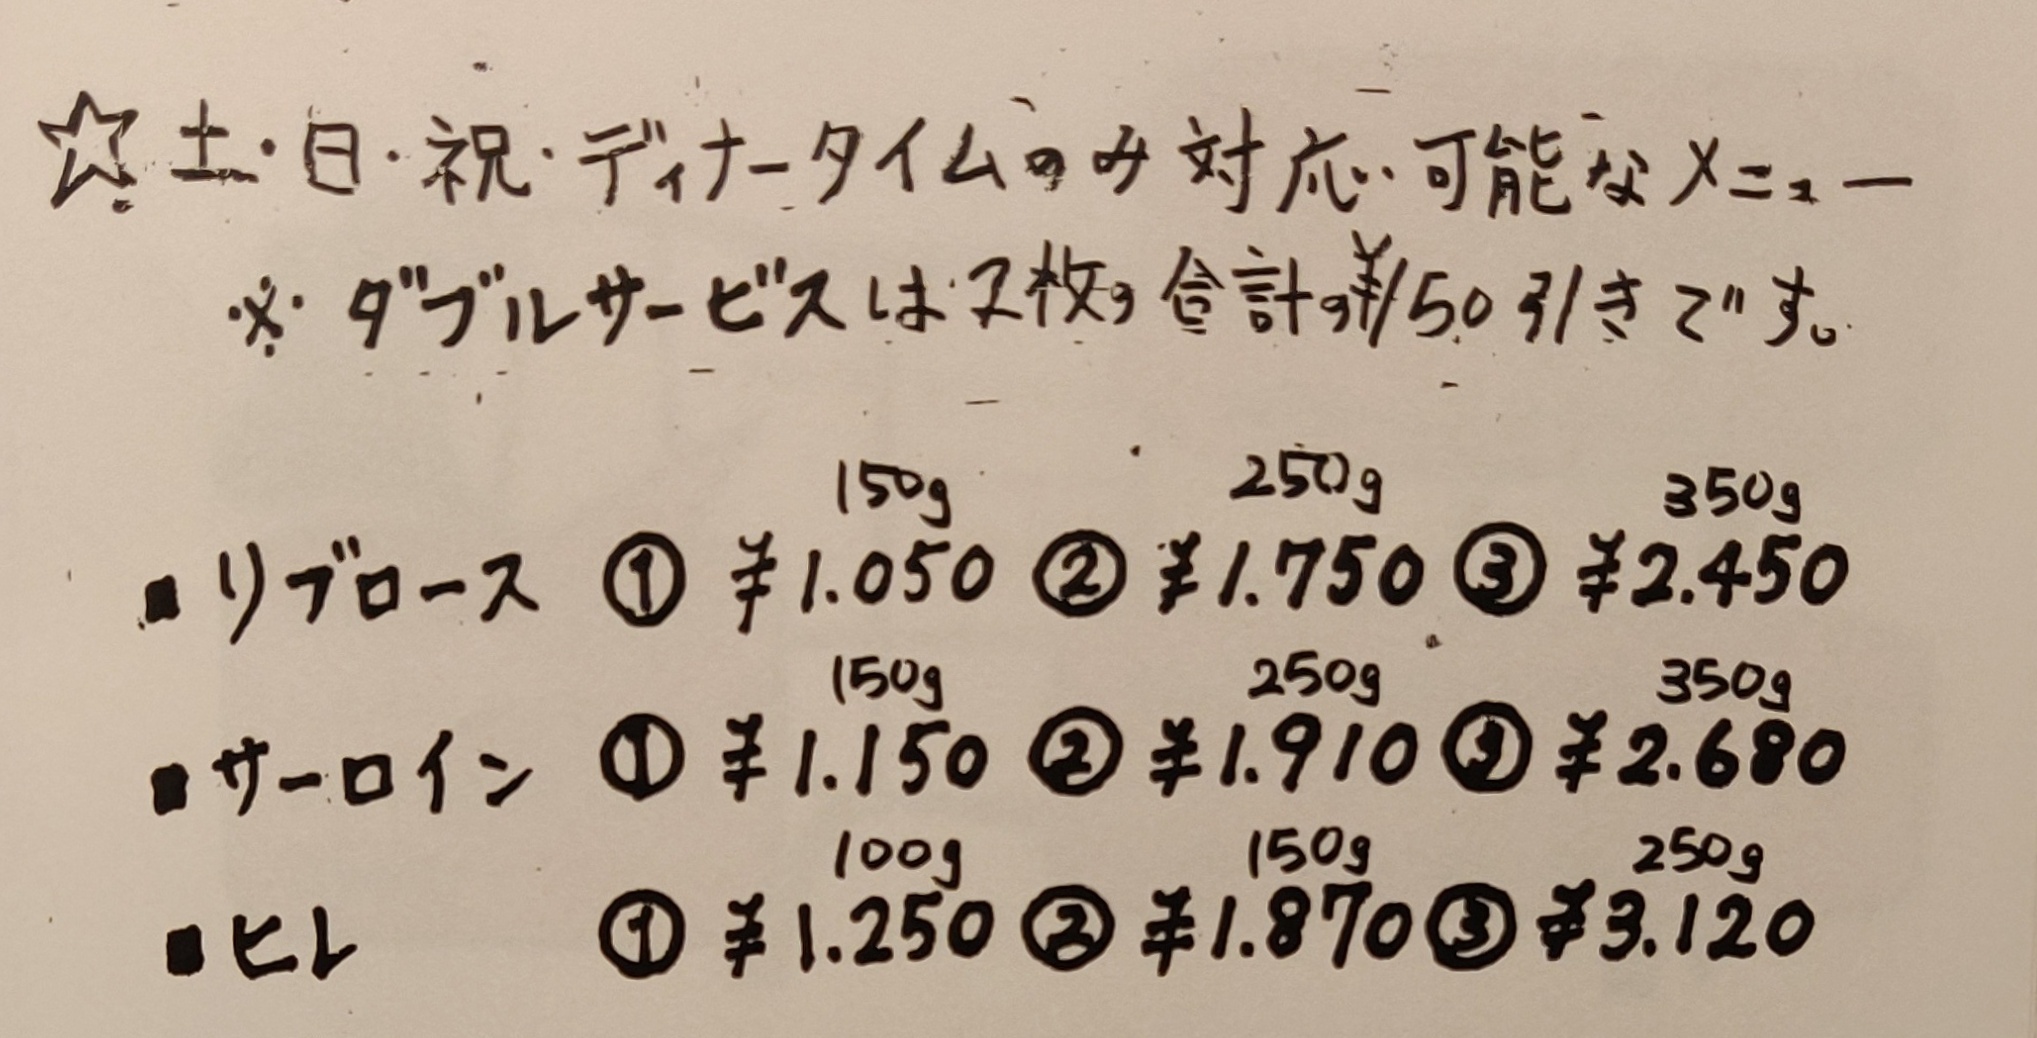 ☆土・日・祝・ディナータイムのみ対応可能なメニュー
※ダブルサービスは2枚の合計の¥150引きです。
150g 250g 350g
■リブロース ① ¥1.050 ② ¥1.750 ③ ¥2.450
150g 250g 350g
■サーロイン ① ¥1.150 ② ¥1.910 ③ ¥2.680
100g 150g 250g
■ヒレ ① ¥1.250 ② ¥1.870 ③ ¥3.120